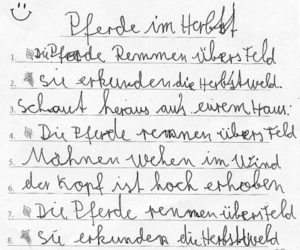 Pferde im Herbst
1. Die Pferde Remmen übers Feld
2. sie erkunden die Herbstweld.
3. Schaut heraus aus eurem Haus:
4. Die Pferde rennen übers Feld
5. Mähnen wehen im Wind
6. der Kopf ist hoch erhoben
7. Die Pferde rennen übers Feld
8. sie erkunden die Herbstweld